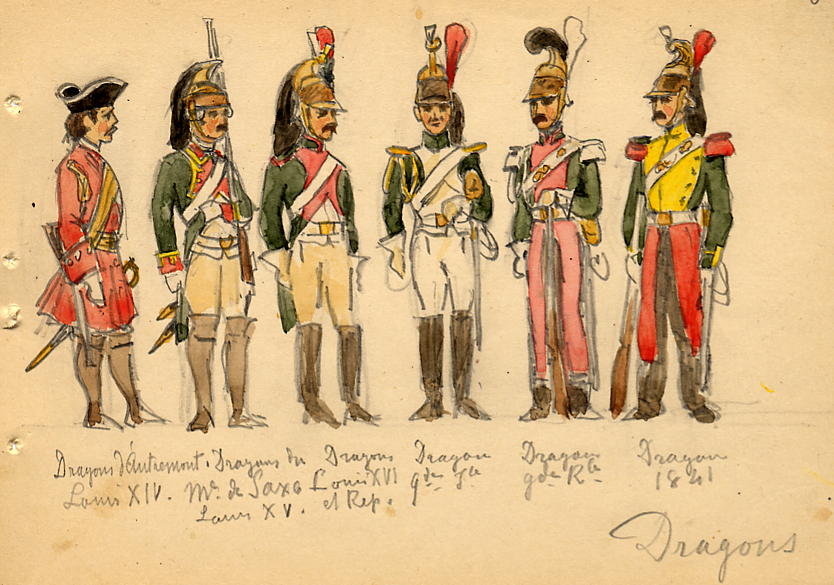 Dragons d'Autremont.
Louis XIV.
Dragons du
Mal. de Saxe
Louis XV.
Dragons
Louis XVI
et Rep.
Dragon
gde
Dragon
gde Rle
Dragon
1841
Dragons